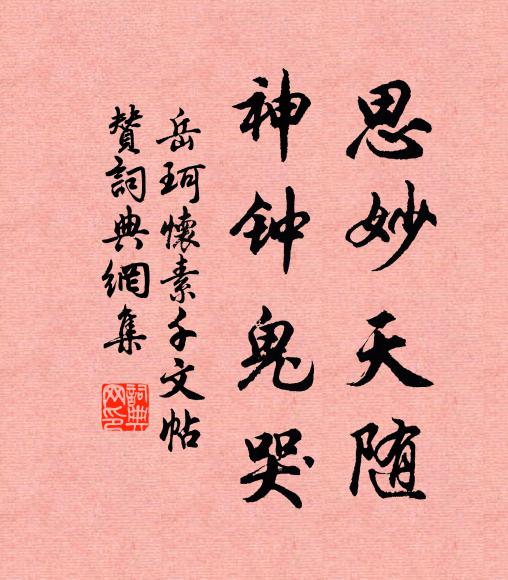 思妙天随
神钟鬼哭
岳珂懷素千文帖
赞詞典網集
詞典
网印